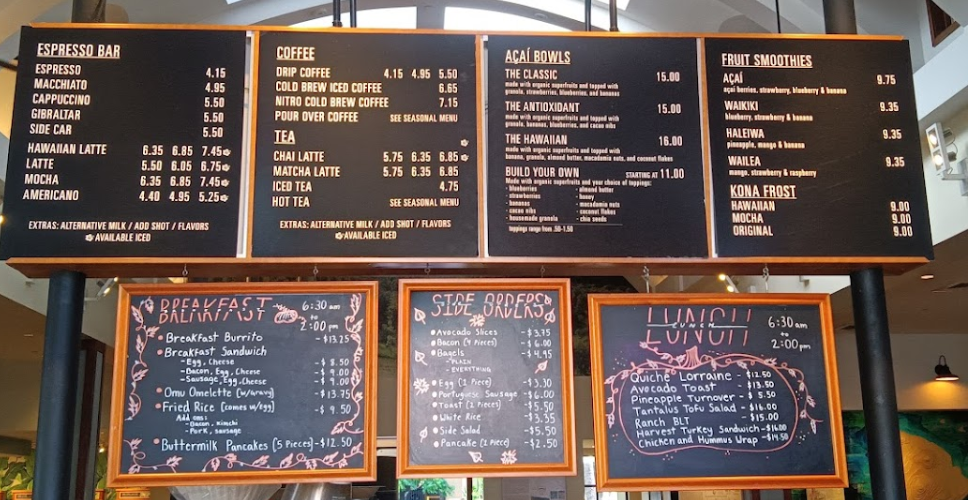 ESPRESSO BAR
ESPRESSO 4.15
MACCHIATO 4.95
CAPPUCCINO 5.50
GIBRALTAR 5.50
SIDE CAR 5.50
HAWAIIAN LATTE 6.35 6.85 7.45
LATTE 5.50 6.05 6.75
MOCHA 6.35 6.85 7.45
AMERICANO 4.40 4.95 5.25
EXTRAS: ALTERNATIVE MILK / ADD SHOT / FLAVORS
AVAILABLE ICED
COFFEE
DRIP COFFEE 4.15 4.95 5.50
COLD BREW ICED COFFEE 6.65
NITRO COLD BREW COFFEE 7.15
POUR OVER COFFEE SEE SEASONAL MENU
TEA
CHAI LATTE 5.75 6.35 6.85
MATCHA LATTE 5.75 6.35 6.85
ICED TEA 4.75
HOT TEA SEE SEASONAL MENU
EXTRAS: ALTERNATIVE MILK / ADD SHOT / FLAVORS
AVAILABLE ICED
AÇAÍ BOWLS
THE CLASSIC 15.00
made with organic superfruits and topped with
granola, strawberries, blueberries, and bananas
THE ANTIOXIDANT 15.00
made with organic superfruits and topped with
granola, bananas, blueberries, and cacao nibs
THE HAWAIIAN 16.00
made with organic superfruits and topped with
banana, granola, almond butter, macadamia nuts, and coconut flakes
BUILD YOUR OWN STARTING AT 11.00
Made with organic superfruits and your choice of toppings:
· blueberries · almond butter
· strawberries · honey
· bananas · macadamia nuts
· cacao nibs · coconut flakes
· housemade granola · chia seeds
toppings range from .50-1.50
FRUIT SMOOTHIES
AÇAÍ 9.75
açai berries, strawberry, blueberry & banana
WAIKIKI 9.35
blueberry, strawberry & banana
HALEIWA 9.35
pineapple, mango & banana
WAILEA 9.35
mango, strawberry & raspberry
KONA FROST
HAWAIIAN 9.00
MOCHA 9.00
ORIGINAL 9.00
BREAKFAST 6:30 am
to
2:00 pm
Breakfast Burrito - $13.25
Breakfast Sandwich
- Egg, Cheese - $ 8.50
- Bacon, Egg, Cheese - $ 9.00
- Sausage, Egg, Cheese - $ 9.00
Omu Omelette [w/gravy] - $13.75
Fried Rice [comes w/egg] - $ 9.50
Add ons:
- Bacon, Kimchi
- Pork, sausage
Buttermilk Pancakes (5 Pieces) - $12.50
SIDE ORDERS
Avocado Slices - $3.75
Bacon (4 Pieces) - $6.00
Bagels - $4.95
- PLAIN
- EVERYTHING
Egg (1 Piece) - $3.30
Portuguese Sausage - $6.00
Toast (2 Pieces) - $5.50
White Rice - $3.35
Side Salad - $5.50
Pancake (1 Piece) - $2.50
LUNCH
LUNCH
LUNCH
6:30 am
to
2:00 pm
Quiche Lorraine - $12.50
Avocado Toast - $13.50
Pineapple Turnover - $ 5.50
Tantalus Tofu Salad - $16.00
Ranch BLT - $15.00
Harvest Turkey Sandwich - $16.00
Chicken and Hummus Wrap - $14.50